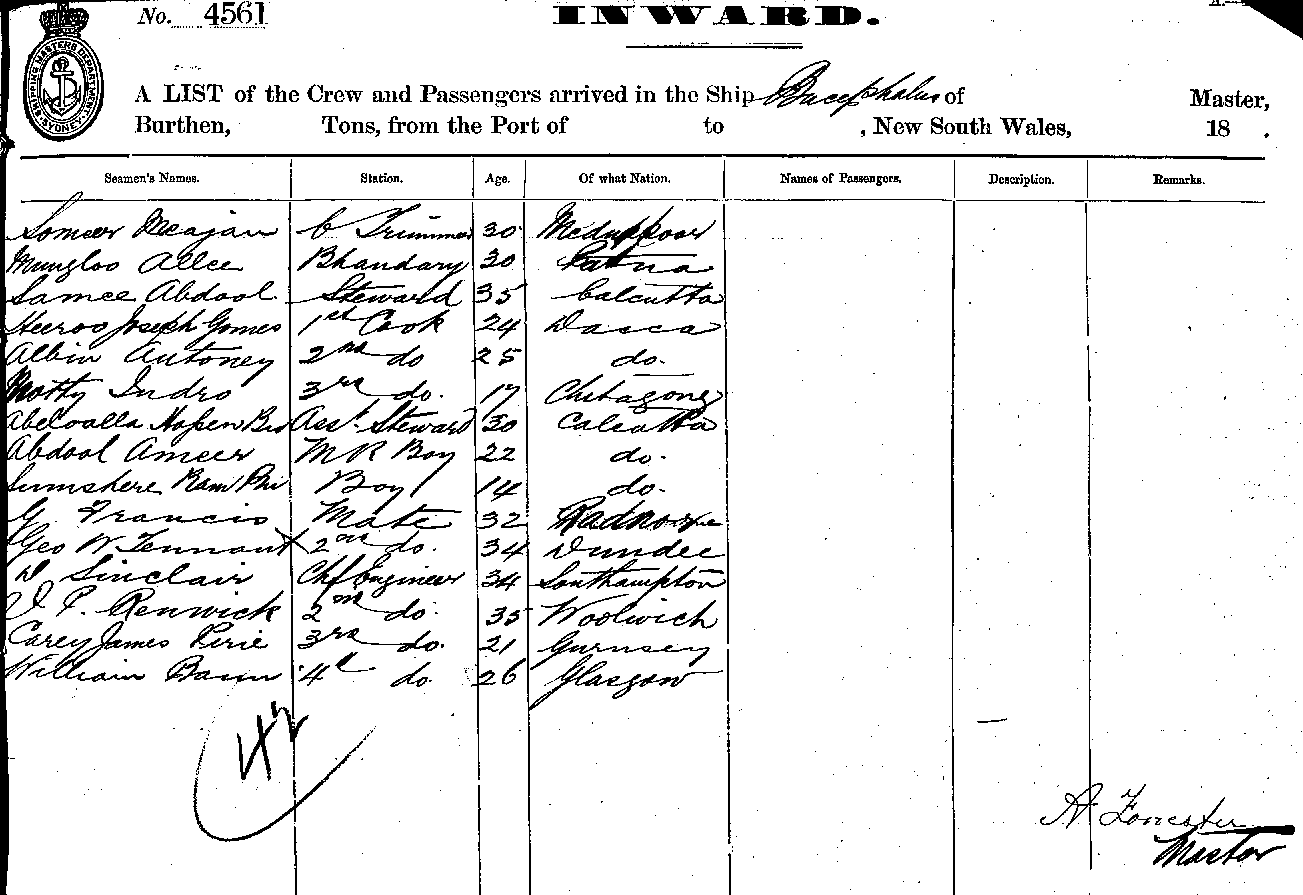 No. 4561
INWARD.
SHIPPING MASTERS DEPARTMENT SYDNEY
A LIST of the Crew and Passengers arrived in the Ship Bucephalus of Master,
Burthen, Tons, from the Port of to , New South Wales, 18 .
Seamen's Names. Station. Age. Of what Nation. Names of Passengers. Description. Remarks.
Someer Meajan C Trimmer 30
Mungloo Allee Bhandary 30 Patna
Samee Abdool Steward 35 Calcutta
Heeroo Joseph Gomes 1st Cook 24 Dacca
Albin Antoney 2nd do 25 do.
Motty Indro 3rd do. 17 Chitagong
Asst. Steward 30 Calcutta
Abdool Ameer M R Boy 22 do.
Boy 14 do.
G Francis Mate 32
Geo W Tennant X 2nd do. 34 Dundee
D Sinclair Chf Engineer 34 Southampton
J P. Renwick 2nd do. 35 Woolwich
Carey James Pirie 3rd do. 21 Gurnsey
William Bain 4th do. 26 Glasgow
42
A Forrester
Master